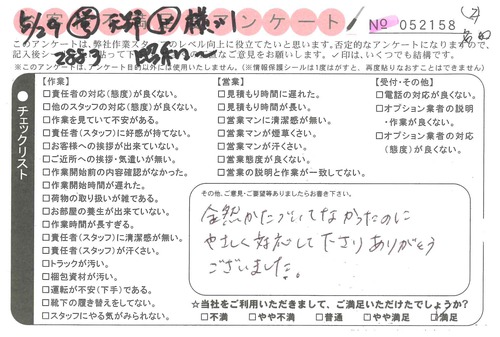 お客様不満足アンケート
No 052158
5/29
様
このアンケートは、弊社作業スタッフのレベル向上に役立てたいと思います。否定的なアンケートになりますので、
※このアンケートは、アンケート目的以外には使用いたしません。(※情報保護シールは1度はがすと、再度貼りなおすことはできません)
チェックリスト
【作業】
□責任者の対応(態度)が良くない。
□他のスタッフの対応(態度)が良くない。
□作業を見ていて不安がある。
□責任者(スタッフ)に好感が持てない。
□お客様への挨拶が出来ていない。
□ご近所への挨拶・気遣いが無い。
□作業開始前の内容確認がなかった。
□作業開始時間が遅れた。
□荷物の取り扱いが雑である。
□お部屋の養生が出来ていない。
□作業時間が長すぎる。
□責任者(スタッフ)に清潔感が無い。
□責任者(スタッフ)が汗くさい。
□トラックが汚い。
□梱包資材が汚い。
□運転が不安(下手)である。
□靴下の履き替えをしてない。
□スタッフにやる気がみられない。
【営業】
□見積もり時間に遅れた。
□見積もり時間が長い。
□営業マンに清潔感が無い。
□営業マンが煙草くさい。
□営業マンが汗くさい。
□営業態度が良くない。
□営業の説明と作業が一致してない。
【受付・その他】
□電話の対応が良くない。
□オプション業者の説明
・作業が良くない。
□オプション業者の対応
(態度)が良くない。
その他、ご意見・ご要望等ありましたらお書き下さい。
全然かたづいてなかったのに
やさしく対応して下さりありがとう
ございました。
☆当社をご利用いただきまして、ご満足いただけたでしょうか?
□不満 □やや不満 □普通 □やや満足 □満足